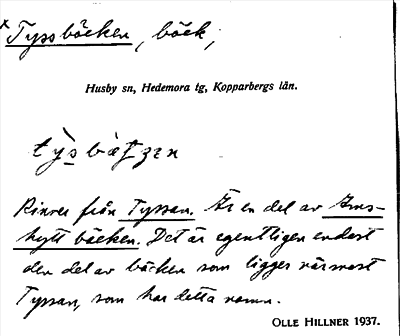 x Tyssbäcken, bäck,
Husby sn, Hedemora tg, Kopparbergs län.
Rinner från Tyssan. Är en del av Ams-
hytt bäcken. Det är egentligen endast
den del av bäcken som ligger närmast
Tyssan, som har detta namn.
OLLE HILLNER 1937.